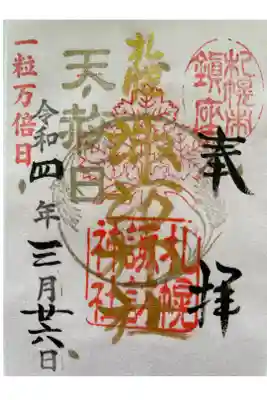 札幌市
鎮座
奉拝
札幌
諏訪神社
札幌
諏訪
神社
天赦日
一粒万倍日
令和四年三月廿六日